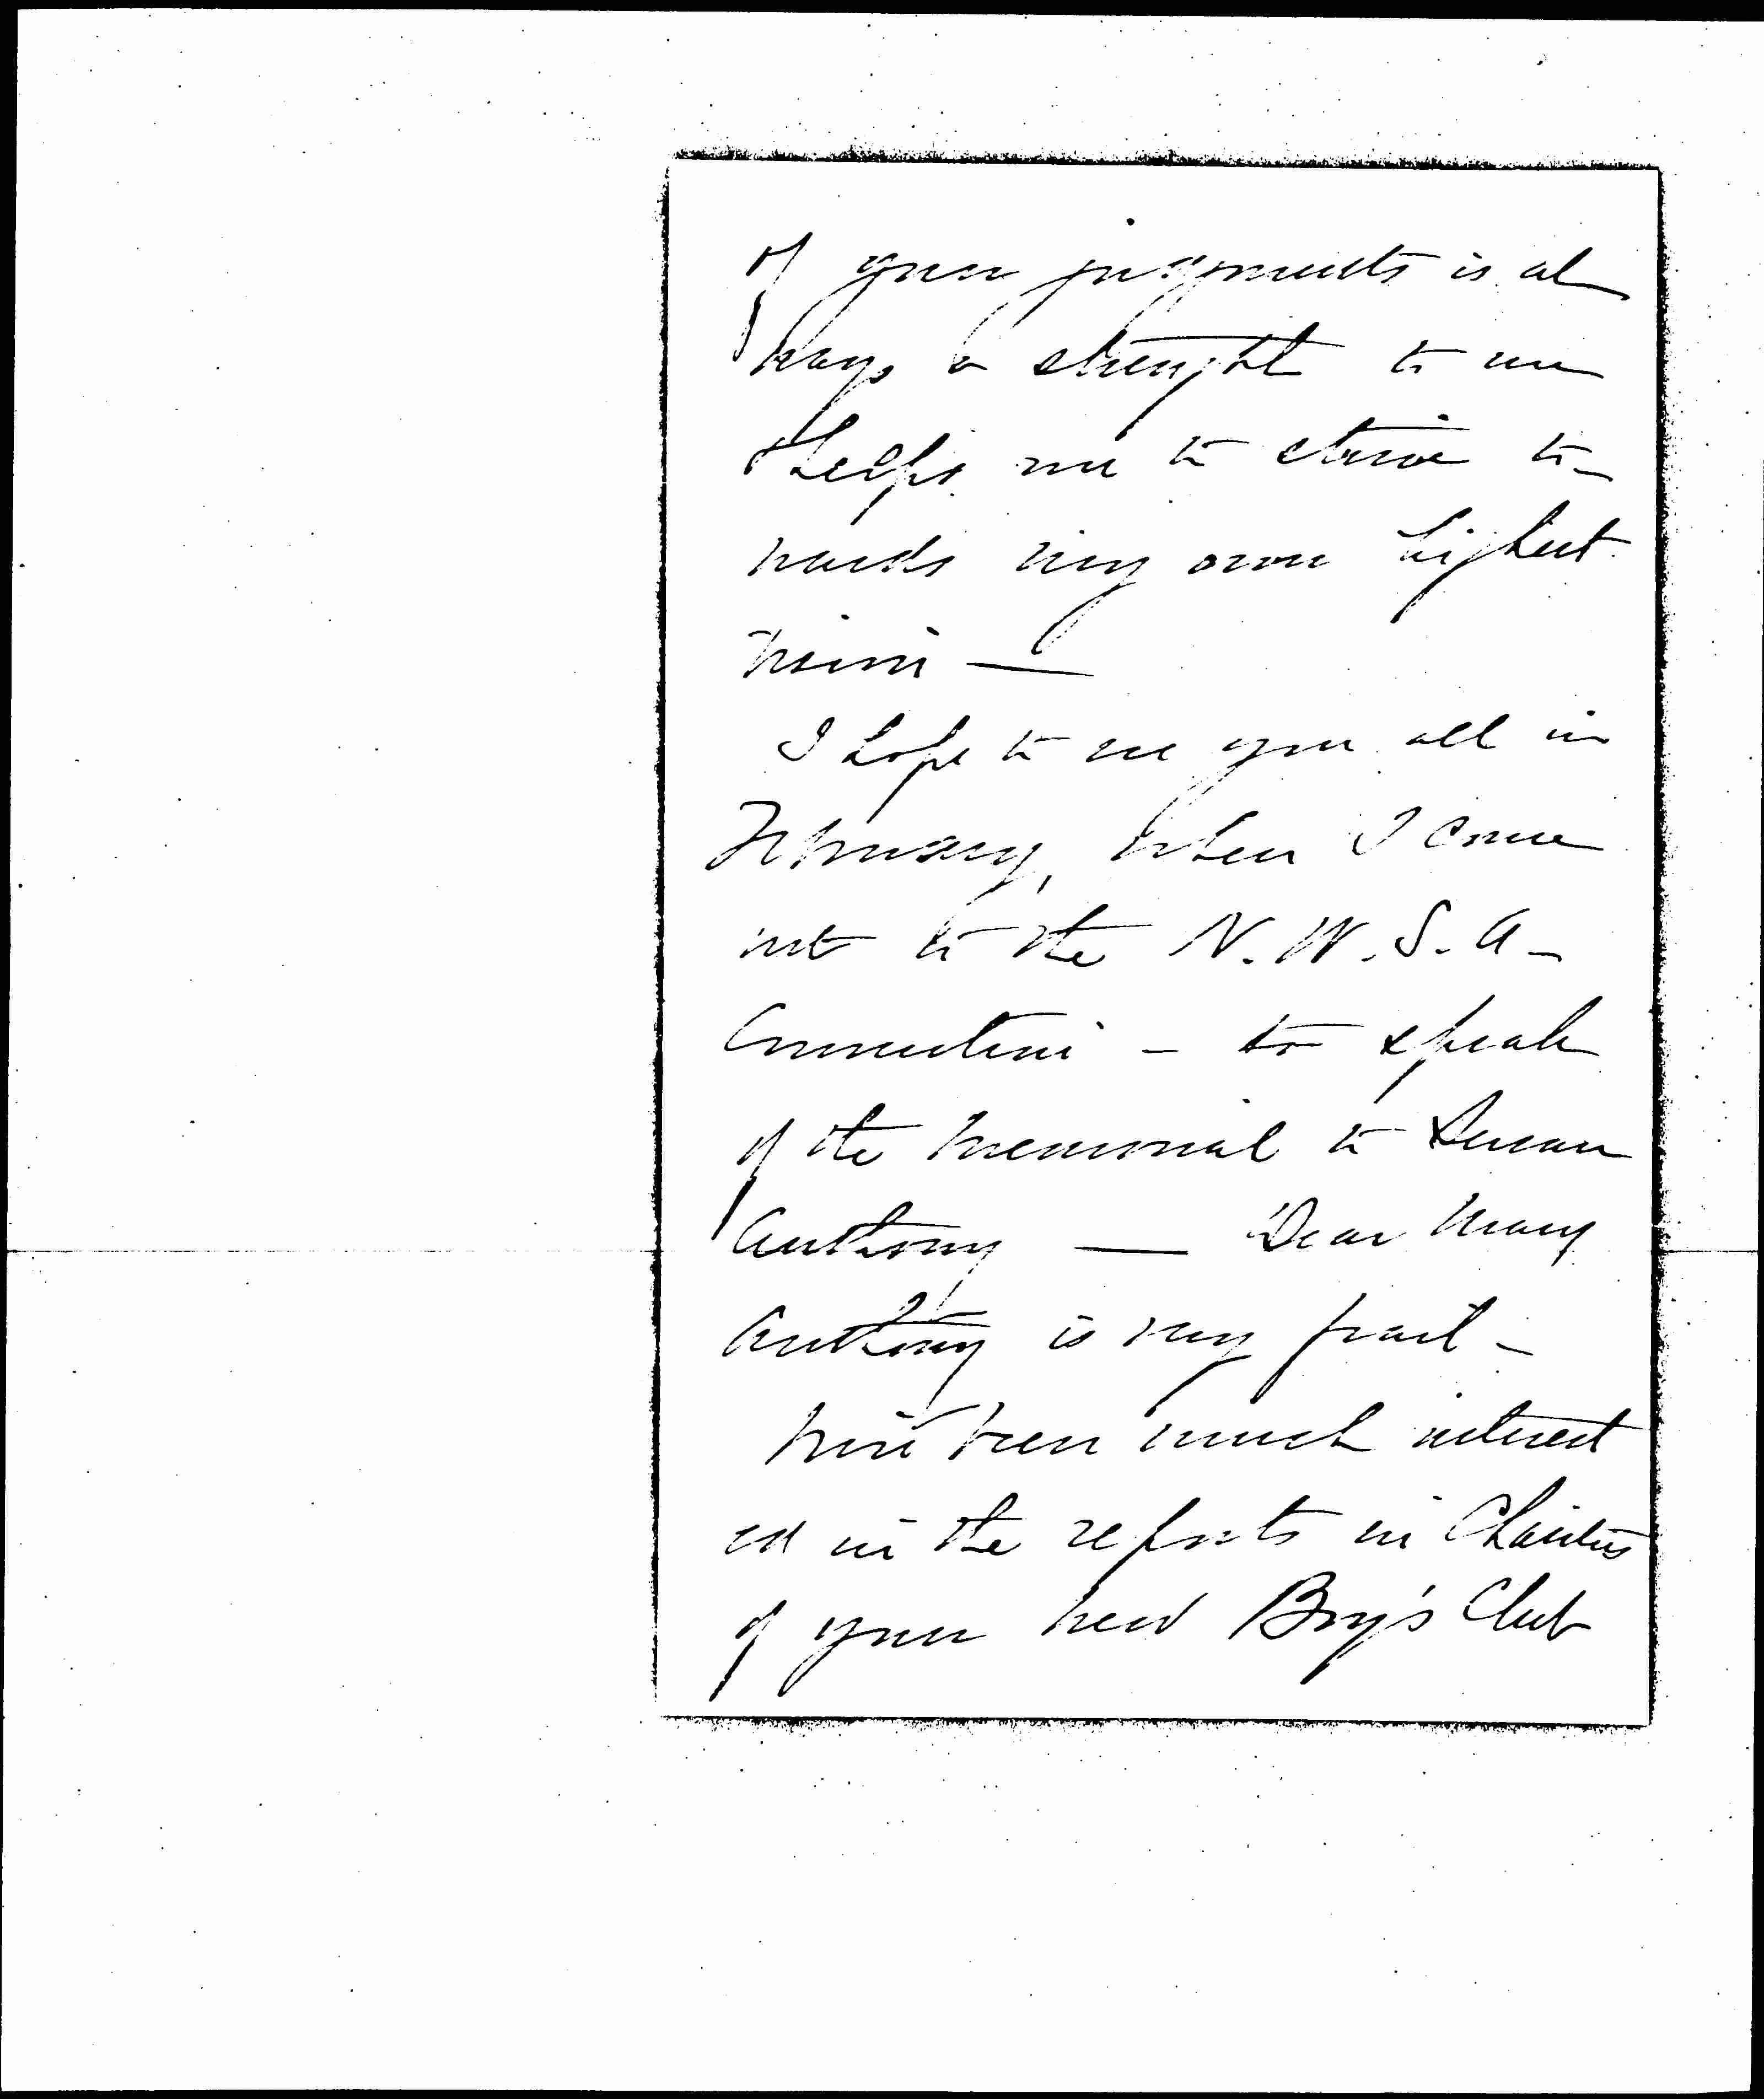 of your judgments is al
ways a strength to me
& helps me to strive to-
wards my own highest
vision —
I hope to see you all in
February, when I come
out to the N. W. S. A -
Convention - to speak
of the memorial to Susan
Anthony — Dear Mary
Anthony is very frail -
Have been much interest
ed in the reports in Charities
of your new Boy's Club